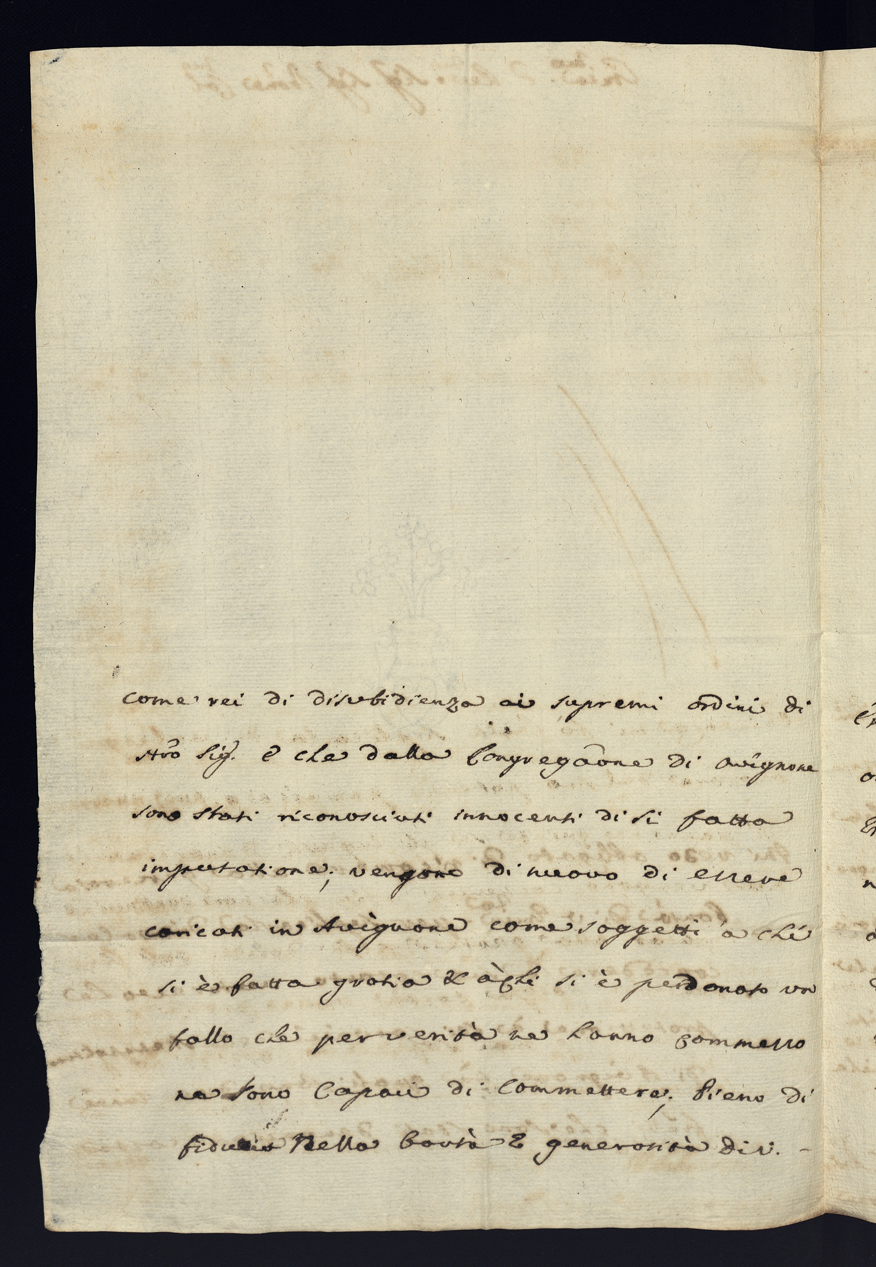 come rei di disubidienza ai supremi ordini di
Nro Sig.r e che dalla Congregaone di Avignone
sono stati riconosciuti innocenti di si fatta
imputatione; vengono di nuovo di essere
caricati in Avignone come soggetti a chi
si è fatta gratia & à chi si è perdonato un
fallo che per verità ne hanno commesso
ne sono Capaci di Commettere; Pieno di
fiducia Nella bontà e generosità di v. -